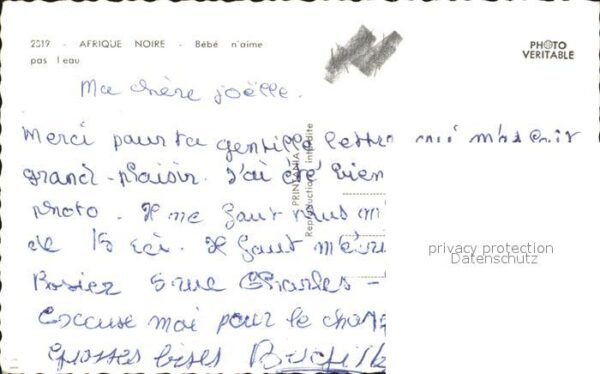 2519 - AFRIQUE NOIRE - Bébé n'aime
pas l eau
PHOTO
VERITABLE
Ma chère joëlle.
Merci pour ta gentille lettre qui m'a fait
grand plaisir. J'ai été bien
photo. Il ne faut plus m
de 15 ici. Il faut m'écri
5 rue Charles -
Excuse moi pour le chan
grosses bises
PRINTANIA
Reproduction interdite
privacy protection
Datenschutz